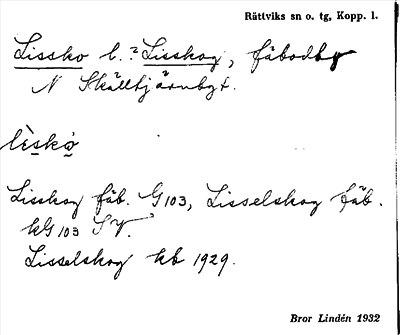 Rättviks sn o. tg, Kopp. l.
Lissko l.? Lisskog, fäbodby
N Skålltjärnbgt.
lèskò
Lisskog fäb. G 103, Lisselskog fäb.
kG 103 SV.
Lisselskog kb 1929.
Bror Lindén 1932